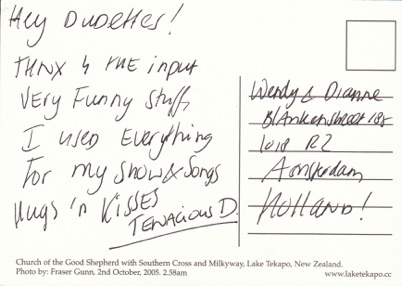 Hey Dudettes!
THNX 4 THE input
Very Funny Stuff,
I used Everything
For my Show & Songs
Hugs 'n KiSSES
TENACIOUS D.
Wendy & Dianne
Blankenstraat 185
1018 RZ
Amsterdam
Holland!
Church of the Good Shepherd with Southern Cross and Milkyway, Lake Tekapo, New Zealand.
Photo by: Fraser Gunn, 2nd October, 2005. 2.58am
www.laketekapo.cc